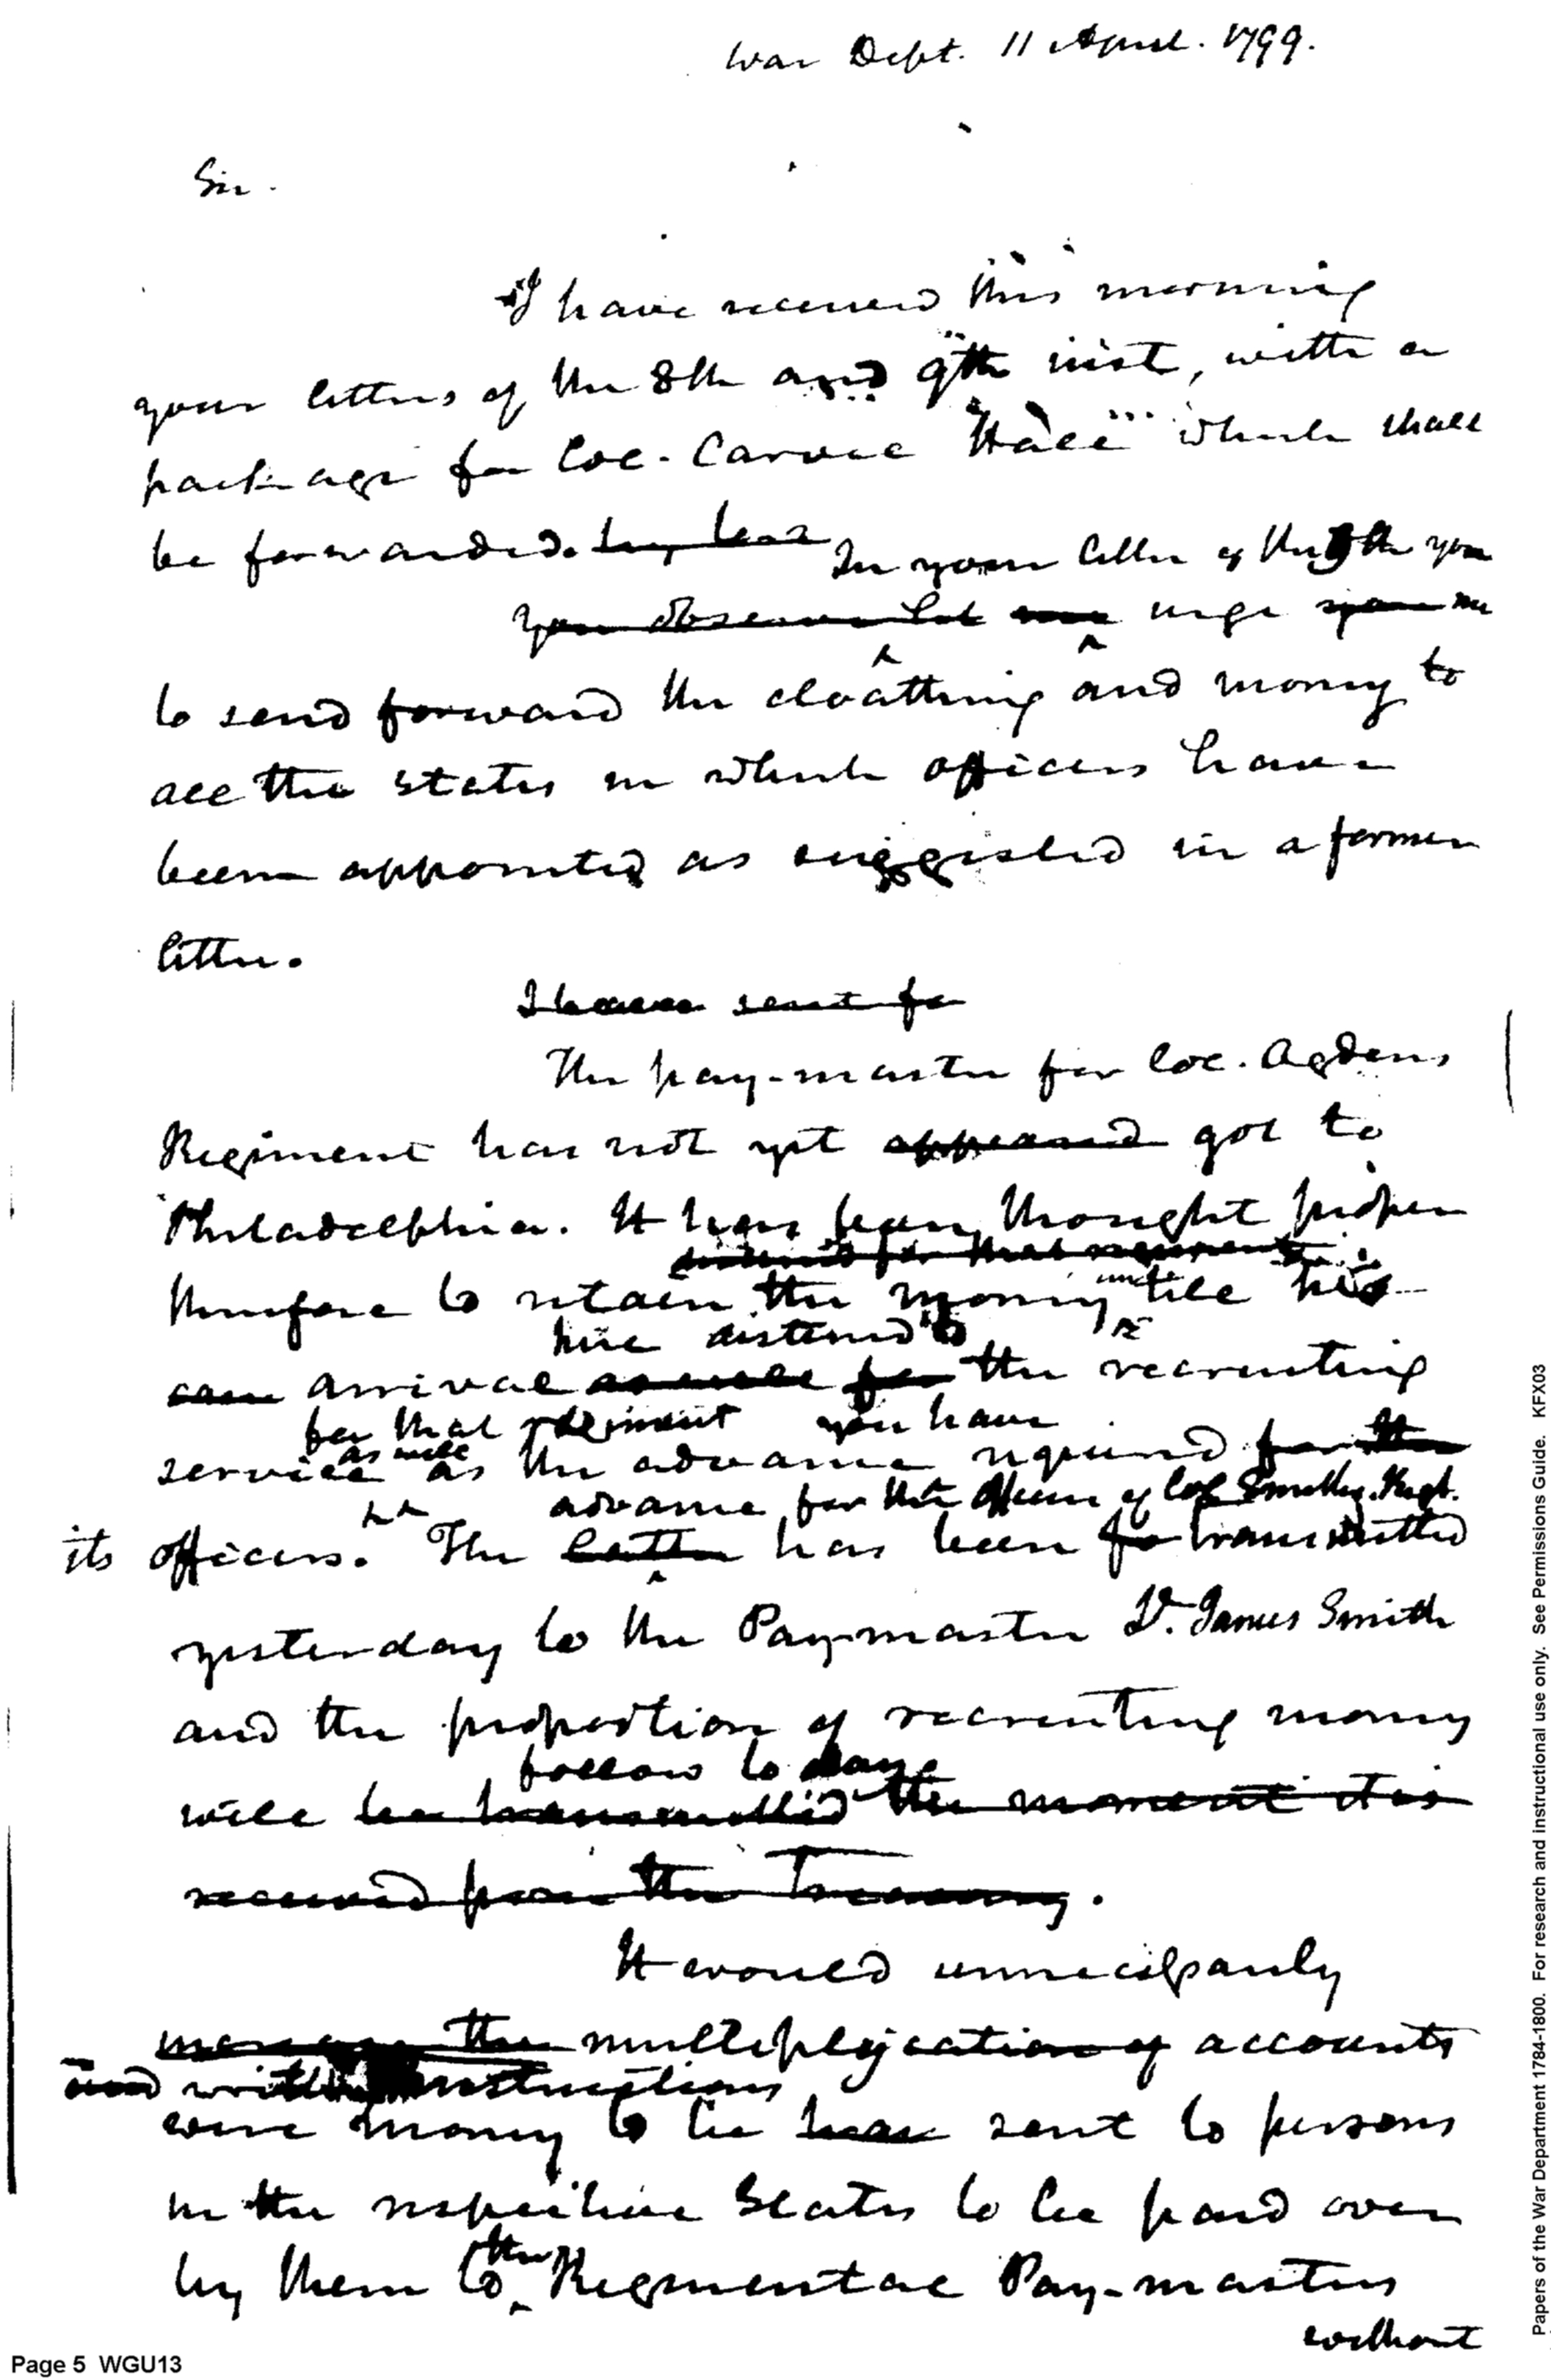 War Dept. 11 April. 1799.
Sir.
I have received this morning
your letters of the 8th and 9th inst, with a
package for Col. Carvel Hall which shall
be forwarded.
In your letter of the 8th you
you observe but urge you me
to send forward the cloathing and money to
all the states in which officers have
been appointed as suggested in a former
letter.
I have sent fo
The pay-master for Col. Ogdens
Regiment has not yet appeared got to
Philadelphia. It has been thought proper
destined for that regiment
therefore to retain the money until his
here destined to
came arrival as well for the recruiting
for that regiment you have
service as well as the advance required for the
advance for the officers of Col Smiths Regt.
its officers. The latter has been fo transmitted
yesterday to the Pay-master Lt. James Smith
and the proportion of recruiting money
follow to day
will be transmitted the moment it is
received from the Treasury.
It would unnecessarily
the multiplication of accounts
and written instructions
were money to be sent to persons
in the respective States to be paid over
by them to the Regimental Pay-masters
without
Page 5 WGU13
Papers of the War Department 1784-1800. For research and instructional use only. See Permissions Guide. KFX03